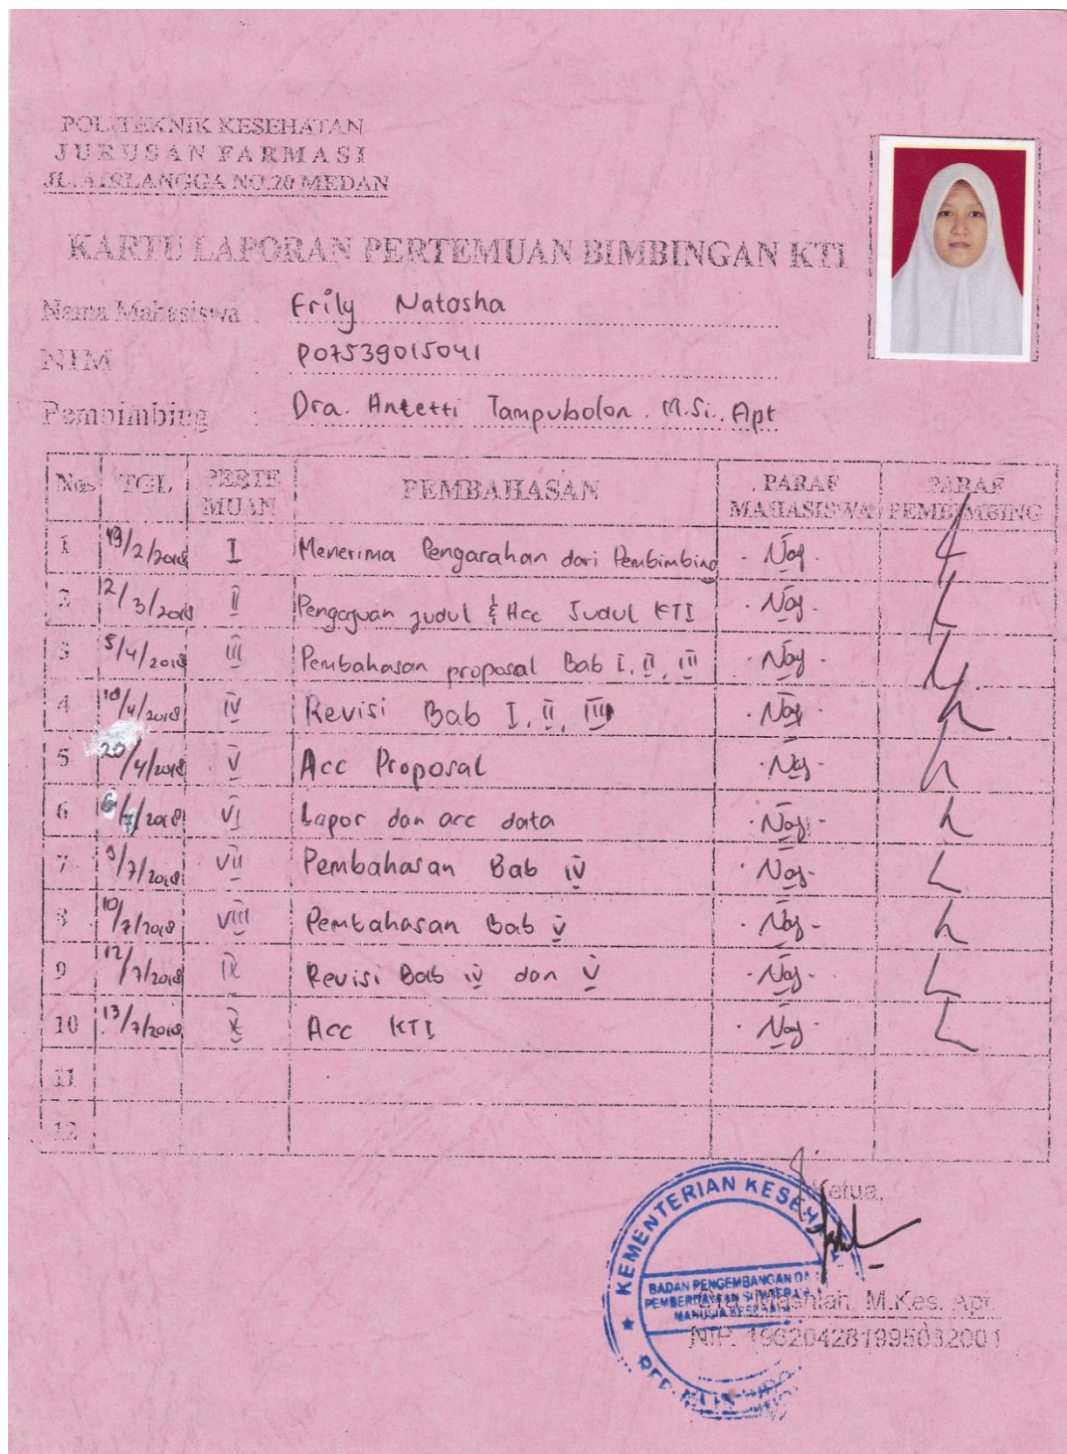 POLITEKNIK KESEHATAN
JURUSAN FARMASI
JL. AIRLANGGA NO.20 MEDAN
KARTU LAPORAN PERTEMUAN BIMBINGAN KTI
Nama Mahasiswa : Erily Natosha
NIM : P07539015041
Pembimbing : Dra. Antetti Tampubolon. M.Si. Apt
No TGL PERTEMUAN PEMBAHASAN PARAF MAHASISWA PARAF PEMBIMBING
1 19/2/2018 I Menerima Pengarahan dari Pembimbing
2 12/3/2018 II Pengajuan judul & Acc Judul KTI
3 5/4/2018 III Pembahasan proposal Bab I, II, III
4 10/4/2018 IV Revisi Bab I, II, III
5 20/4/2018 V Acc Proposal
6 6/7/2018 VI Lapor dan acc data
7 9/7/2018 VII Pembahasan Bab IV
8 10/7/2018 VIII Pembahasan Bab V
9 12/7/2018 IX Revisi Bab IV dan V
10 13/7/2018 X Acc KTI
11
12
Ketua,
KEMENTERIAN KESEHA
BADAN PENGEMBANGAN DA
PEMBERDAYAAN SUMBER
MANUSIA KESEHATAN
Dra. Masniah, M.Kes. Apt
NIP. 196204281995032001